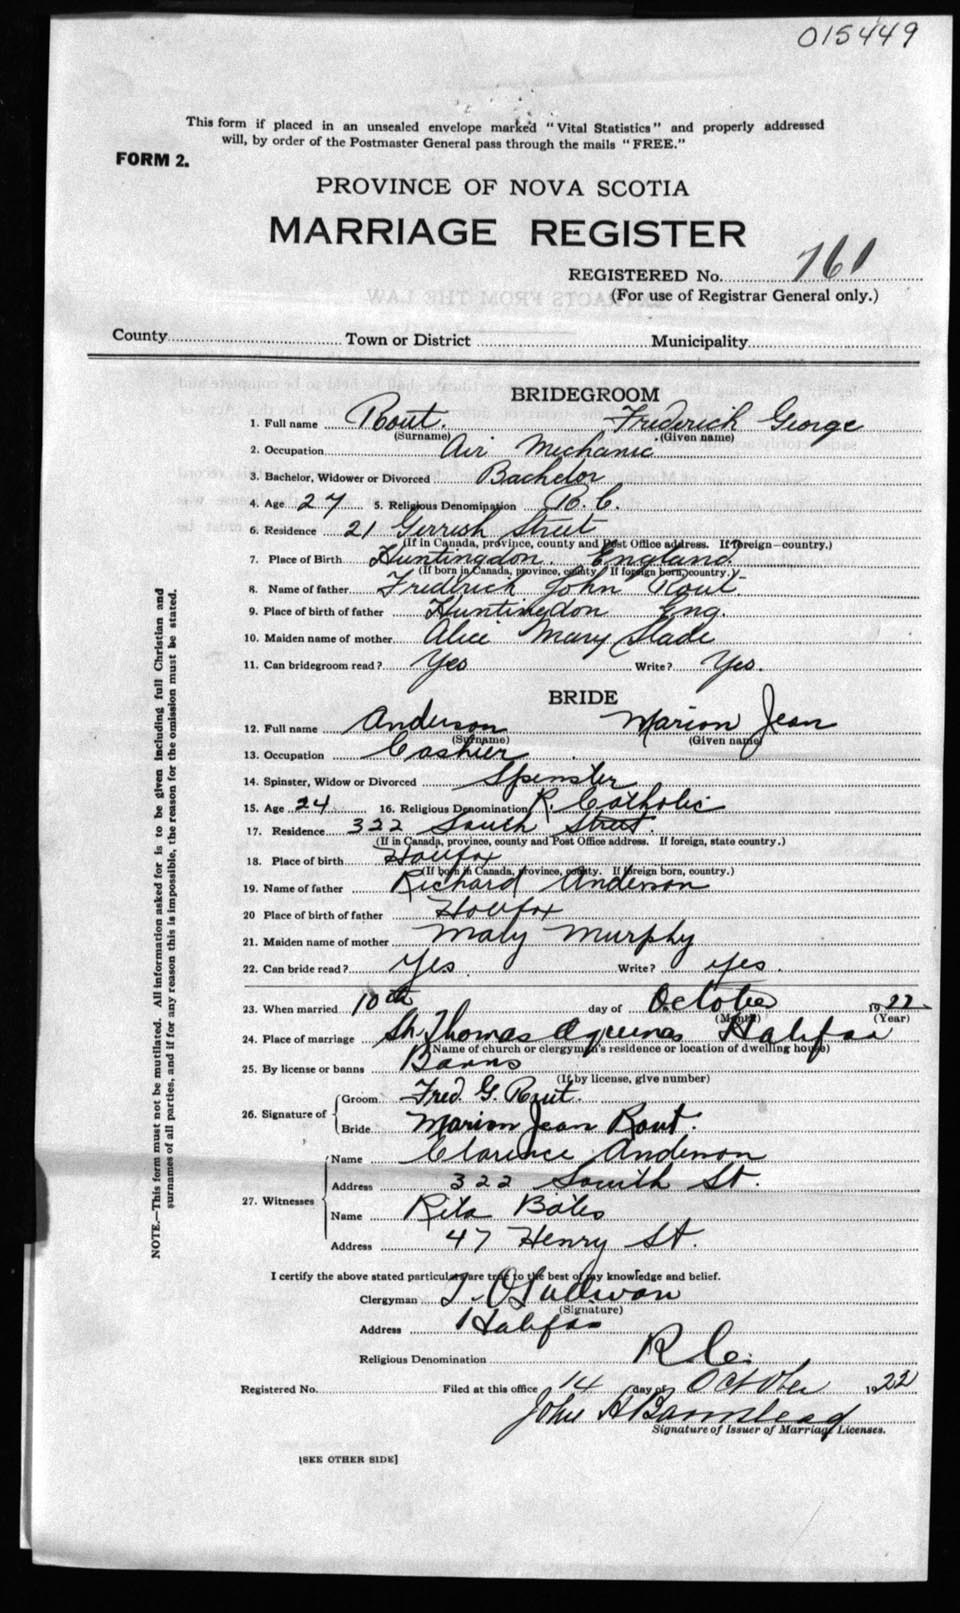 015449
This form if placed in an unsealed envelope marked "Vital Statistics" and properly addressed
will, by order of the Postmaster General pass through the mails "FREE."
FORM 2.
PROVINCE OF NOVA SCOTIA
MARRIAGE REGISTER
REGISTERED No. 761
(For use of Registrar General only.)
County Town or District Municipality
BRIDEGROOM
1. Full name Rout. Frederick George
(Surname) (Given name)
2. Occupation Air Mechanic
3. Bachelor, Widower or Divorced Bachelor
4. Age 27 5. Religious Denomination R. C.
6. Residence 21 Gerrish Street
(If in Canada, province, county and Post Office address. If foreign—country.)
7. Place of Birth Huntingdon. England.
(If born in Canada, province, county If foreign born, country.)
8. Name of father Frederick John Rout
9. Place of birth of father Huntingdon Eng.
10. Maiden name of mother Alice Mary Slade
11. Can bridegroom read? Yes Write? Yes.
BRIDE
12. Full name Anderson Marion Jean
(Surname) (Given name)
13. Occupation Cashier
14. Spinster, Widow or Divorced Spinster
15. Age 24 16. Religious Denomination R. Catholic
17. Residence 322 South Street.
(If in Canada, province, county and Post Office address. If foreign, state country.)
18. Place of birth Halifax
(If born in Canada, province, county. If foreign born, country.)
19. Name of father Richard Anderson
20 Place of birth of father Halifax
21. Maiden name of mother Mary Murphy
22. Can bride read? Yes. Write? yes.
23. When married 10th day of October 1922
(Month) (Year)
24. Place of marriage St. Thomas Aquinas Halifax
(Name of church or clergyman's residence or location of dwelling house)
25. By license or banns Banns
(If by license, give number)
26. Signature of Groom Fred. G. Rout.
Bride Marion Jean Rout.
27. Witnesses Name Clarence Anderson
Address 322 South St.
Name Rita Bates
Address 47 Henry St.
I certify the above stated particulars are true to the best of my knowledge and belief.
Clergyman T. O'Sullivan
(Signature)
Address Halifax
Religious Denomination R.C.
Registered No. Filed at this office 14 day of October 1922
John H Barnstead
Signature of Issuer of Marriage Licenses.
[SEE OTHER SIDE]
NOTE.—This form must not be mutilated. All information asked for is to be given including full Christian and
surnames of all parties, and if for any reason this is impossible, the reason for the omission must be stated.